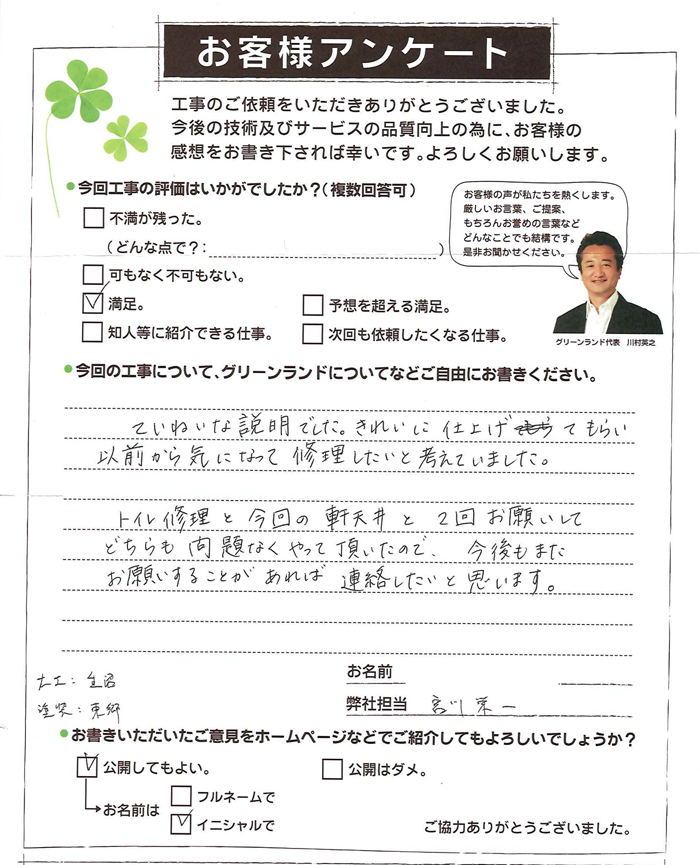 お客様アンケート
工事のご依頼をいただきありがとうございました。
今後の技術及びサービスの品質向上の為に、お客様の
感想をお書き下されば幸いです。よろしくお願いします。
●今回工事の評価はいかがでしたか?(複数回答可)
不満が残った。
(どんな点で?: )
可もなく不可もない。
満足。
予想を超える満足。
知人等に紹介できる仕事。
次回も依頼したくなる仕事。
お客様の声が私たちを熱くします。
厳しいお言葉、ご提案、
もちろんお誉めの言葉など
どんなことでも結構です。
是非お聞かせください。
グリーンランド代表 川村英之
●今回の工事について、グリーンランドについてなどご自由にお書きください。
ていねいな説明でした。きれいに仕上げてもらい
以前から気になって修理したいと考えていました。
トイレ修理と今回の軒天井と2回お願いして
どちらも問題なくやって頂いたので、今後もまた
お願いすることがあれば連絡したいと思います。
大工:
塗装:東郷
お名前
弊社担当 宮川栄一
●お書きいただいたご意見をホームページなどでご紹介してもよろしいでしょうか?
公開してもよい。
公開はダメ。
お名前は
フルネームで
イニシャルで
ご協力ありがとうございました。